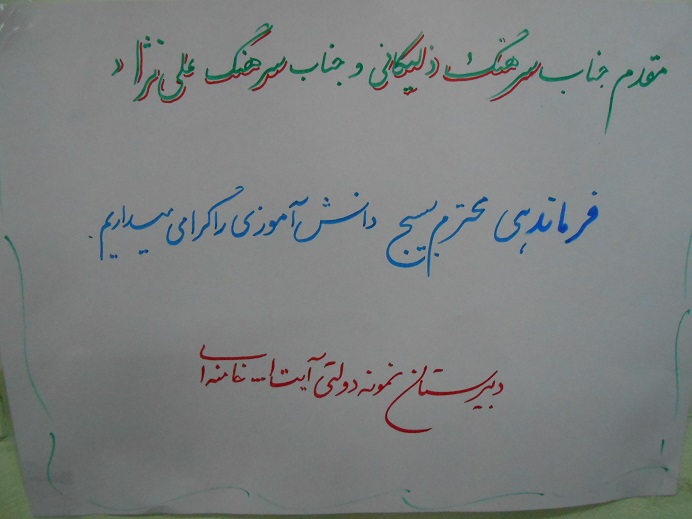 مقدم جناب سرهنگ ذلیکانی و جناب سرهنگ علی نژاد
فرماندهی محترم بسیج دانش آموزی را گرامی میداریم.
دبیرستان نمونه دولتی آیت ا... خامنه ای